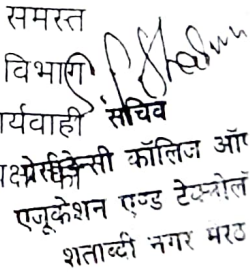 समस्त
विभागों
र्यवाही सचिव
प्रेसीडेन्सी कॉलिज ऑ
एजूकेशन एण्ड टेक्नोलॉ
शताब्दी नगर मेरठ